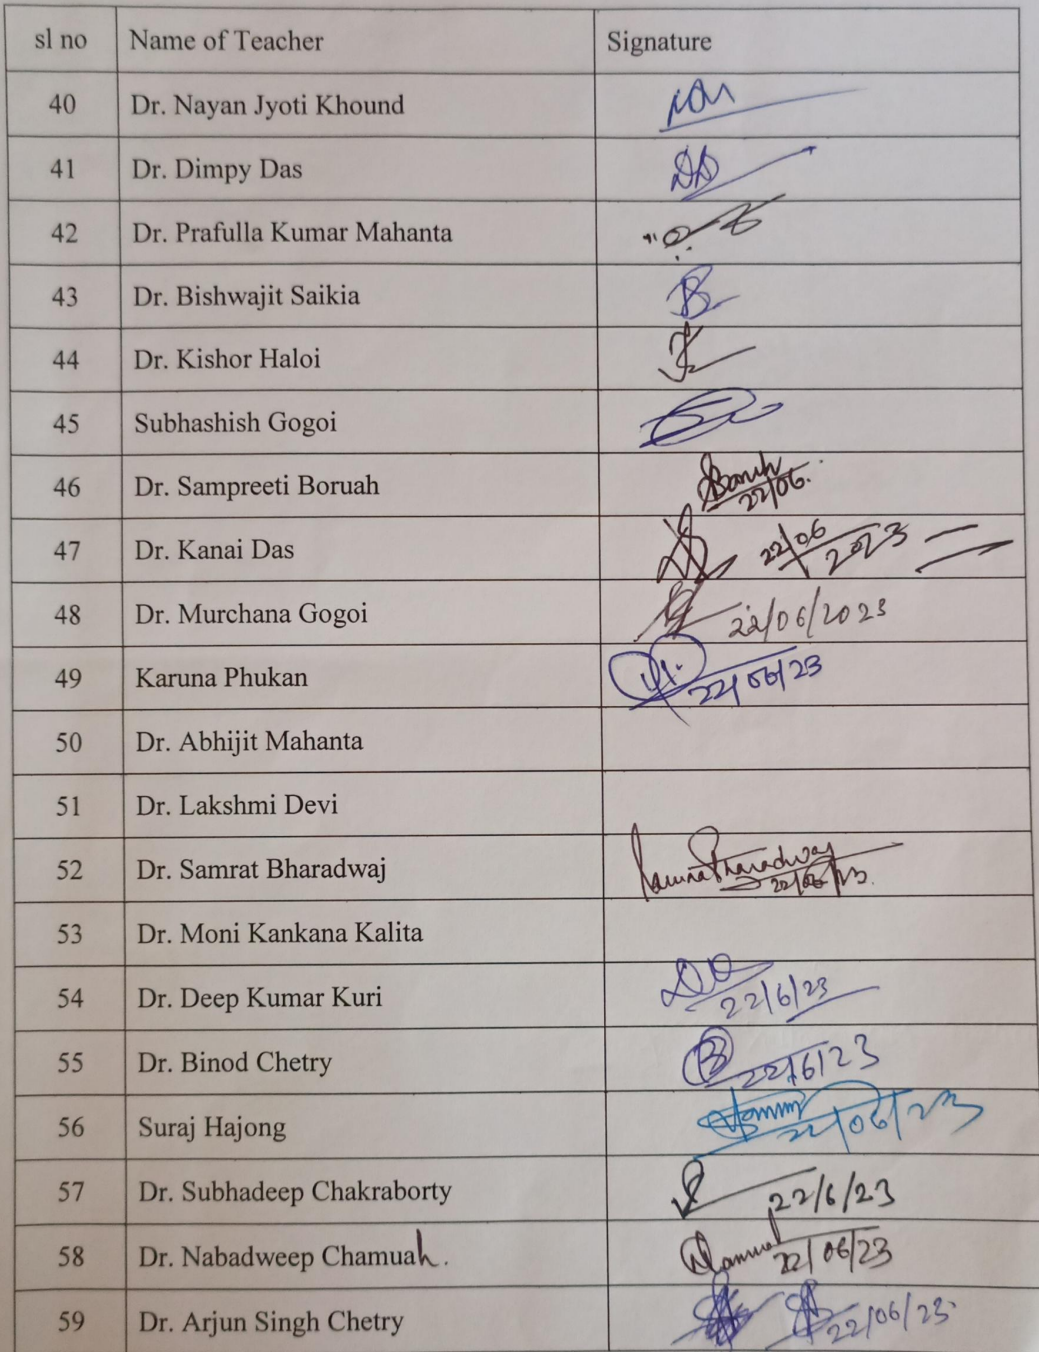 sl no Name of Teacher Signature
40 Dr. Nayan Jyoti Khound
41 Dr. Dimpy Das
42 Dr. Prafulla Kumar Mahanta
43 Dr. Bishwajit Saikia
44 Dr. Kishor Haloi
45 Subhashish Gogoi
46 Dr. Sampreeti Boruah 22/06.
47 Dr. Kanai Das 22/06 2023
48 Dr. Murchana Gogoi 22/06/2023
49 Karuna Phukan 22/06/23
50 Dr. Abhijit Mahanta
51 Dr. Lakshmi Devi
52 Dr. Samrat Bharadwaj 22/06/23.
53 Dr. Moni Kankana Kalita
54 Dr. Deep Kumar Kuri 22/6/23
55 Dr. Binod Chetry 22/6/23
56 Suraj Hajong 22/06/23
57 Dr. Subhadeep Chakraborty 22/6/23
58 Dr. Nabadweep Chamuah. 22/06/23
59 Dr. Arjun Singh Chetry 22/06/23